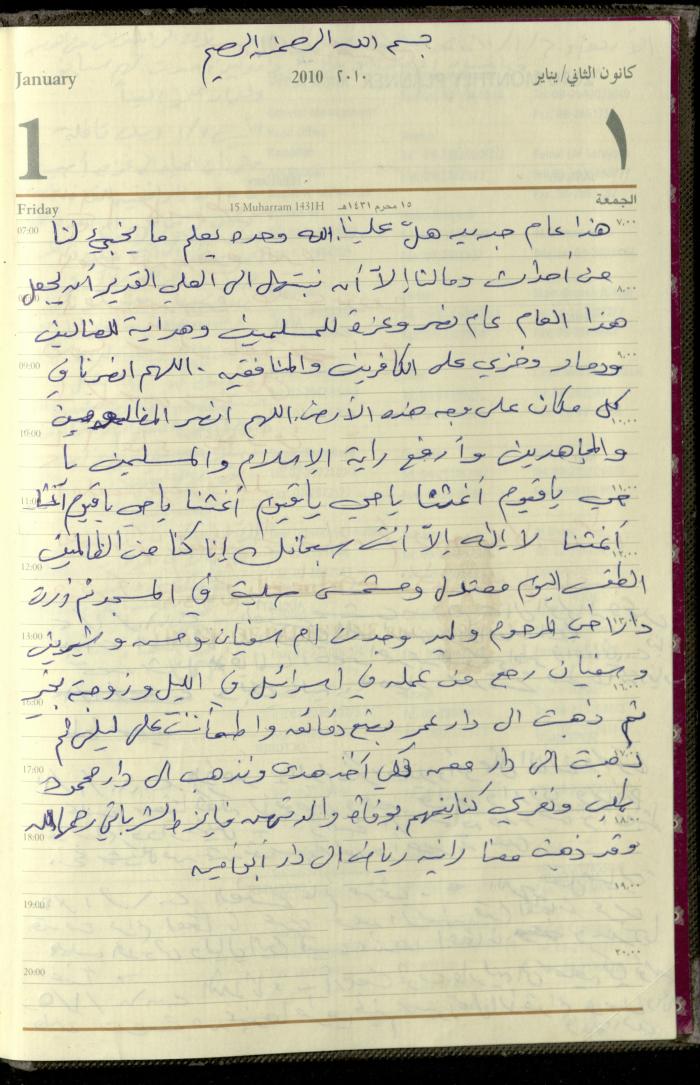 بسم الله الرحمن الرحيم
January 2010 ٢٠١٠ كانون الثاني/يناير
1 ١
Friday 15 Muharram 1431H ١٥ محرم ١٤٣١هـ الجمعة
07:00 هذا عام جديد هلّ علينا، الله وحده يعلم ما يخبئ لنا ٧,٠٠
من أحداث ومالنا إلاّ أن نبتهل الى العلي القدير أن يجعل ٨,٠٠
هذا العام عام نصر وعزة للمسلمين وهداية للضالين
09:00 ودمار وخزي على الكافرين والمنافقين. اللهم انصرنا في ٩,٠٠
كل مكان على وجه هذه الأرض، اللهم انصر المظلومين
10:00 والمجاهدين وأرفع راية الإسلام والمسلمين يا ١٠,٠٠
11:00 حي ياقيوم أغثنا ياحي ياقيوم أغثنا ياحي ياقيوم أغثنا ١١,٠٠
أغثنا لا إله إلاّ أنت سبحانك إنا كنا من الظالمين ١٢,٠٠
12:00 الطقس اليوم معتدل ومشمس صليت في المسجد ثم زرت
13:00 دار اخي المرحوم وليد وجدت ام سفيان وحسن وشيرين ١٣,٠٠
وسفيان رجع من عمله في اسرائيل في الليل وزوجته بخير
16:00 ثم ذهبت الى دار عمر بضع دقائق واطمأننت على ليلى ثم ١٦,٠٠
17:00 ذهبت الى دار معن لكي آخذ هدى ونذهب الى دار محمود ١٧,٠٠
ونعزي كنايتهم بوفاة والدتهن فايزة الشرباتي رحمها الله ١٨,٠٠
18:00 وقد ذهبت معنا رانيه رياض الى دار
19:00 ١٩,٠٠
20:00 ٢٠,٠٠